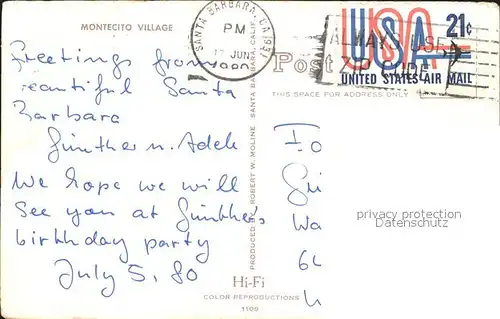 MONTECITO VILLAGE
SANTA BARBARA, CA 931
PM
17 JUN
21¢
USA
UNITED STATES AIR MAIL
ALWAYS USE
ZIP CODE
Post
THIS SPACE FOR ADDRESS ONLY
Greetings from
beautiful Santa
Barbara
Günther u. Adele
We hope we will
see you at Günther's
birthday party
July 5, 80
PRODUCED BY ROBERT W. MOLINE SANTA BARBARA, CALIF.
Wa
privacy protection
Datenschutz
Hi-Fi
COLOR REPRODUCTIONS
1109